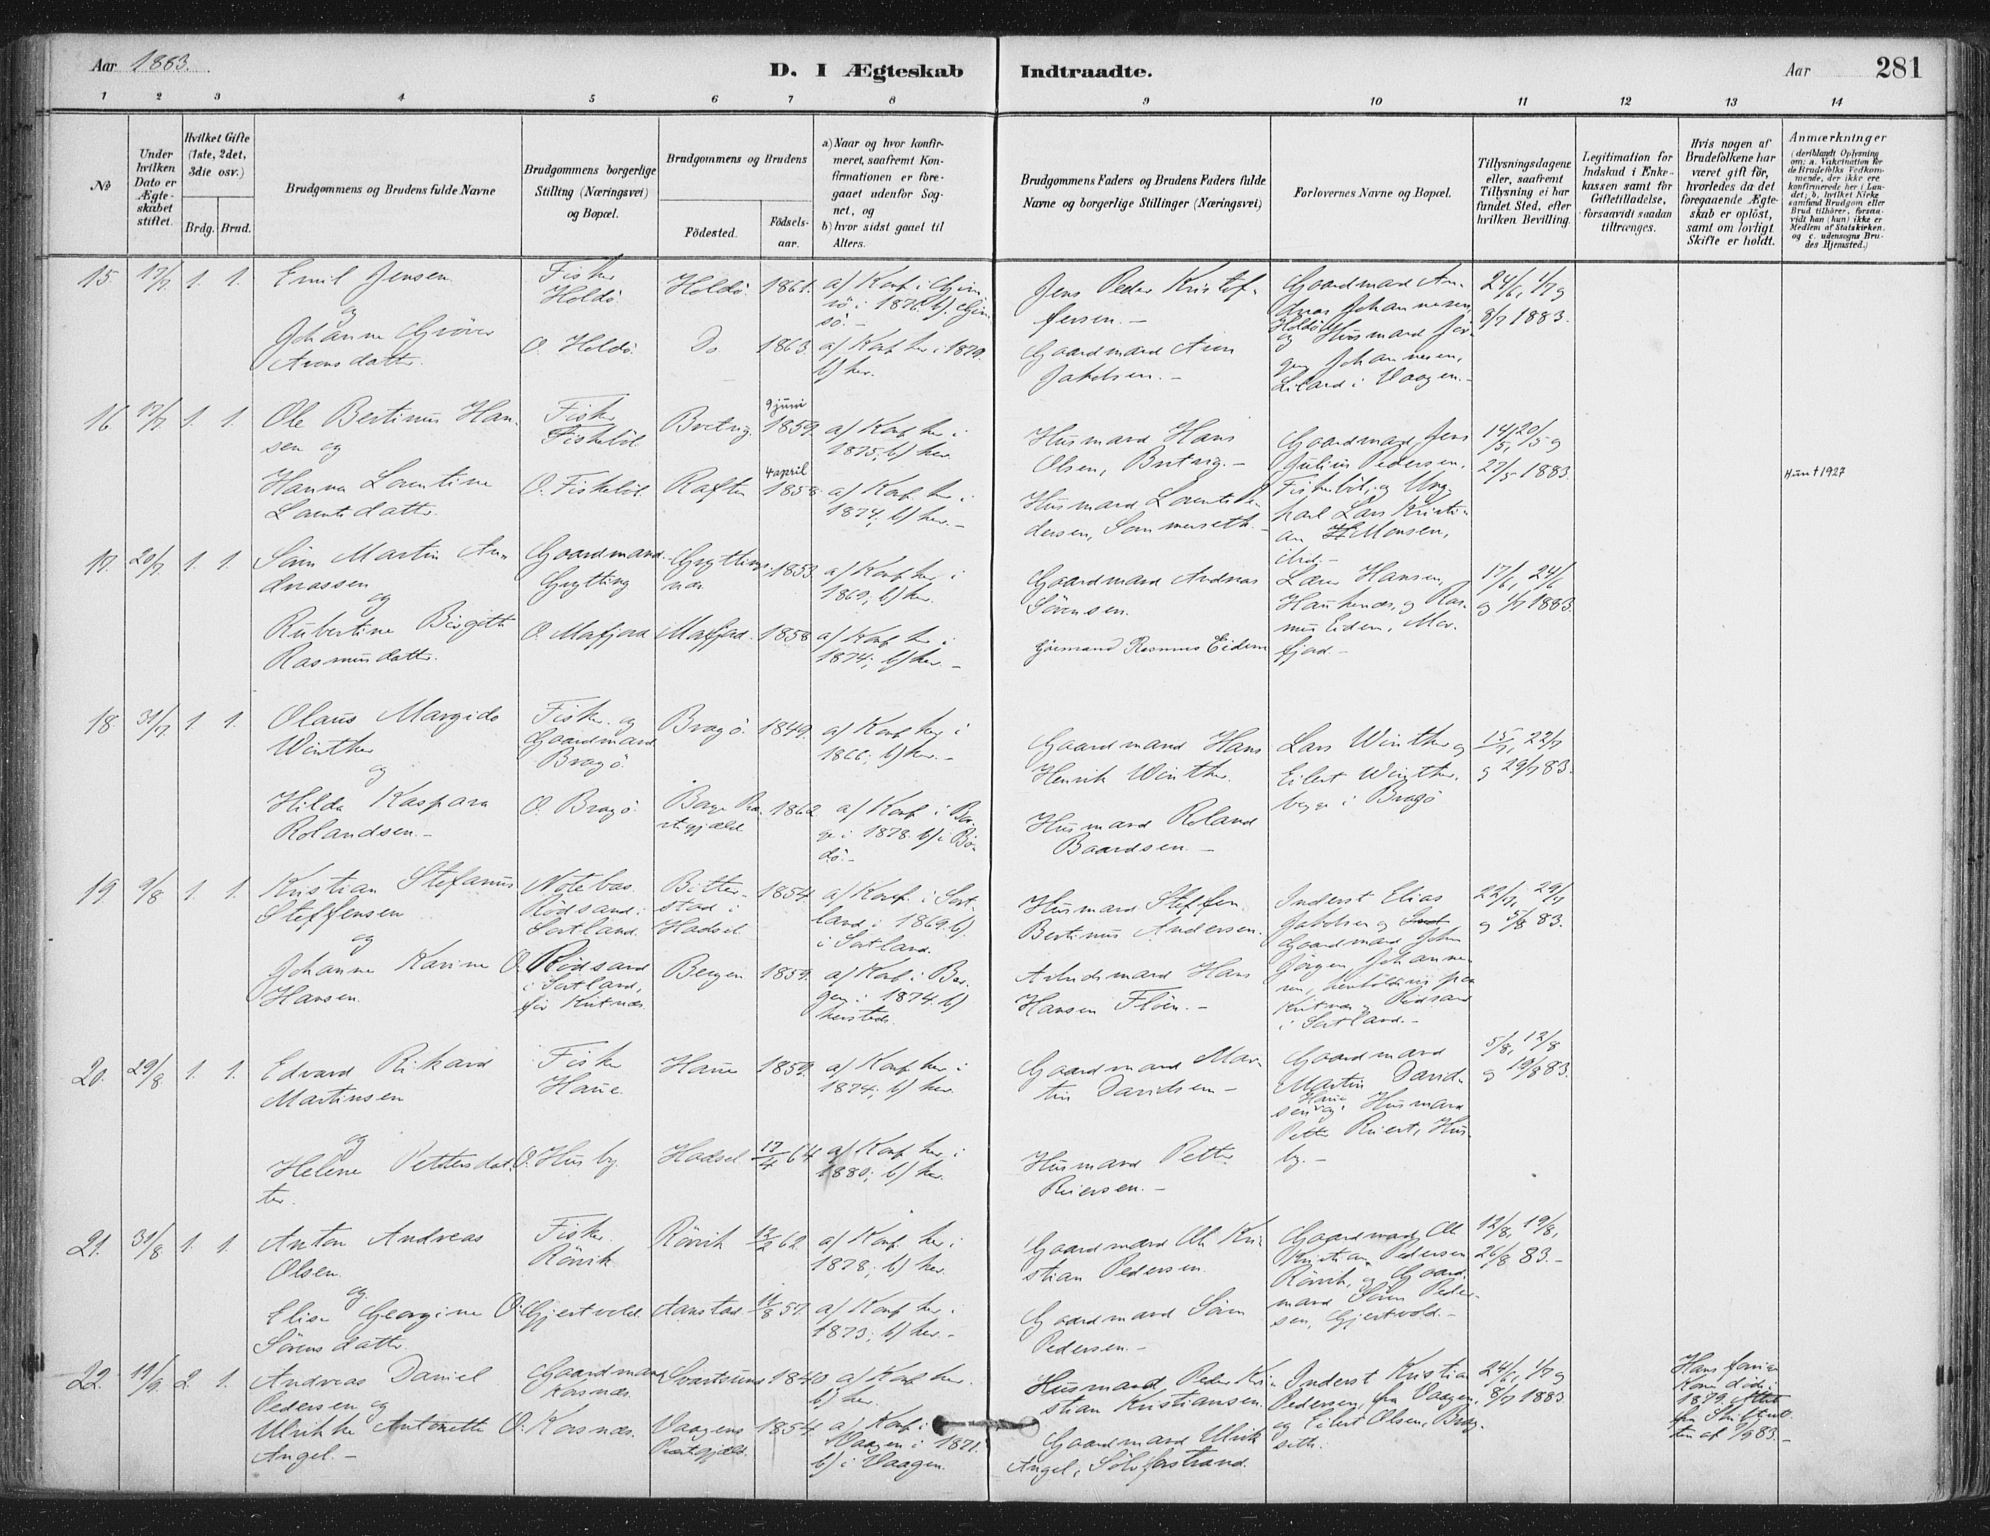 Aar 1883.
D. I Ægteskab Indtraadte.
Aar 281
1 2 3 4 5 6 7 8 9 10 11 12 13 14
No
Under hvilken Dato er Ægteskabet stiftet.
Hvilket Gifte (1ste, 2det, 3die osv.)
Brdg. Brud.
Brudgommens og Brudens fulde Navne
Brudgommens borgerlige Stilling (Næringsvei) og Bopæl.
Brudgommens og Brudens
Födested.
Födsels-aar.
a) Naar og hvor konfir-
meret, saafremt Kon-
firmationen er fore-
gaaet udenfor Sog-
net, og
b) hvor sidst gaaet til
Alters.
Brudgommens Faders og Brudens Faders fulde
Navne og borgerlige Stillinger (Næringsvei)
Forlovernes Navne og Bopæl.
Tillysningsdagene
eller, saafremt
Tillysning ei har
fundet Sted, efter
hvilken Bevilling.
Legitimation for
Indskud i Enke-
kassen samt for
Giftetilladelse,
forsaavidt saadan
tiltrænges.
Hvis nogen af
Brudefolkene har
været gift før,
hvorledes da det
foregaaende Ægte-
skab er oplöst,
samt om lovligt
Skifte er holdt.
Anmærkninger
(deriblandt Oplysning
om: a. Vakcination for
de Brudefolks Vedkom-
mende, der ikke ere
konfirmerede her i Lan-
det; b. hvilket Kirke-
samfund Brudgom eller
Brud tilhörer, forsaa-
vidt han (hun) ikke er
Medlem af Statskirken.
og c. udensogns Bru-
des Hjemsted.)
15. 17/7 1. 1. Emil Jensen
og
Johanne
Arons datter.
Fisker
Holdö.
O. Holdö.
Holdö. 1861.
Do 1863.
a) Konf. i Gim-
sö i 1876. b) Gim-
sö. -
a) Konf. her i 1879.
b) her.
Jens Peder Kristof-
fersen. -
Gaardmand Aron
Jakobsen. -
Gaardmand An-
dreas Johannesen
Holdö
og Husmand Jör-
gen Johannesen,
i Vaagen. -
24/6, 1/7 og
8/7 1883.
16. 17/7 1. 1. Ole Bertinus Han-
sen og
Hanna Lorentine
Lorents datter.
Fisker
Fiskeböl.
O. Fiskeböl.
9 juni
1859.
4 april
Raften 1858.
a) Konf. her i
1875; b) her.
a) Konf. her i
1874; b) her. -
Husmand Hans
Olsen,
Husmand Lorents Pe-
dersen, Sommerseth. -
Gaardmand Jens
Julius Pedersen,
Fiskeböl, og Ung-
karl Lars Kristi-
an Monsen,
ibid. -
14/5, 20/5 og
27/5 1883.
Hun † 1927
17. 20/7 1. 1. Sören Martin An-
dreassen
og
Rubertine Birgitte
Rasmusdatter.
Gaardmand
Grytting
O. Mafjord
Gryttings-
nes 1853.
Mafjord. 1858
a) Konf. her i
1869; b) her.
a) Konf. her i
1874; b) her. -
Gaardmand Andreas
Sörensen.
Rasmus Eidem
Lærer Hansen,
Haukenæs, og Ras-
mus Eidem, Ma-
fjord. -
17/6, 24/6
og 1/7 1883.
18. 31/7 1. 1. Olaus Margido
Winther
og
Hilda Kaspara
Rolandsen. -
Fisker og
Gaardmand
Bragö.
O. Bragö.
Bragö. 1849.
1862
a) Konf. her i
1866; b) her. -
a) Konf. i Bor-
ge i 1878. b) i Bo-
dö. -
Gaardmand Hans
Henrik Winther.
Husmand Roland
Baardsen. -
Lars Winther og
Eilert Winther,
begge i Bragö
15/7, 22/7
og 29/7 83.
19. 9/8 1. 1. Kristian Stefanus
Steffensen
og
Johanne Karine
Hansen.
Notebas
Rödsand i
Sortland.
O. Rödsand
i Sortland,
Bitter-
stad i
Hadsel 1854.
Bergen 1859.
a) Konf. i Sort-
land i 1869. b)
i Sortland.
a) Konf. i Ber-
gen i 1874. b)
hersteds.
Husmand Steffen
Bertinus Andersen.
Arbeidsmand Hans
Hansen Flöen. -
Inderst Elias
Jakobsen og
Gaardmand John
Jörgen Johanne-
sen, henholdsvis paa
Rödsand
i Sortland. -
22/7, 29/7
og 5/8 83.
20. 29/8 1. 1. Edvard Rikard
Martinsen
og
Helene Pettersdat-
ter.
Fisker
Haue.
O. Husby.
Haue 1859.
Hadsel 17/4 64
a) Konf. her i
1874; b) her.
a) Konf. her i
1880; b) her.
Gaardmand Mar-
tin Davidsen -
Husmand Petter
Riersen. -
Gaardmand
Martin David-
sen Haue og Husmand
Petter Riert, Hus-
by. -
5/8, 12/8
og 19/8 83.
21. 31/8 1. 1. Anton Andreas
Olsen
og
Elise Georgine
Sörens datter.
Fisker.
Rörvik
O. Gjertvold.
Rörvik 62.
Aanstad 57.
a) Konf. her i
1878; b) her.
a) Konf. her i
1873; b) her. -
Gaardmand Ole Kri-
stian Pedersen.
Gaardmand Sören
Pedersen. -
Gaardmand Ole
Kristian Pedersen
Rörvik, og Gaard-
mand Sören Peder-
sen, Gjertvold. -
12/8, 19/8,
26/8 83. -
22. 2. 1. Andreas Daniel
Pedersen og
Ulrikke Antonette
Angel. -
Gaardmand
Korsnæs.
O. Korsnæs.
Svartsund 1840
Vaagens
Præstegjeld. 1854
a) Konf. her.
b) her.
a) Konf. i
Vaagen i 1871.
b) i Vaagen.
Husmand Peder Kri-
stian Kristiansen.
Gaardmand Ulrik
Angel,
Inderst Kristian
Pedersen, fra Vaagen,
og Eilert Olsen,
24/6, 1/7 og
8/7 1883
Hans forrige
Kone döde i
1879.